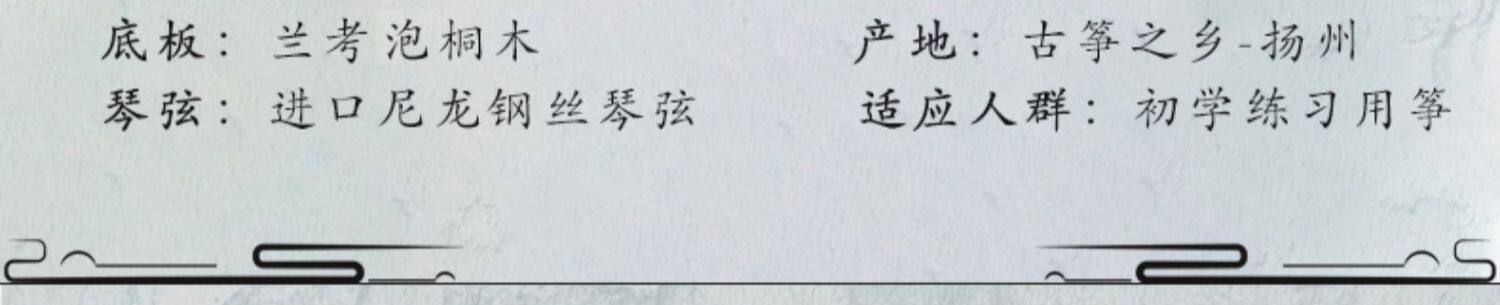 底板：兰考泡桐木 产地：古筝之乡-扬州
琴弦：进口尼龙钢丝琴弦 适应人群：初学练习用筝